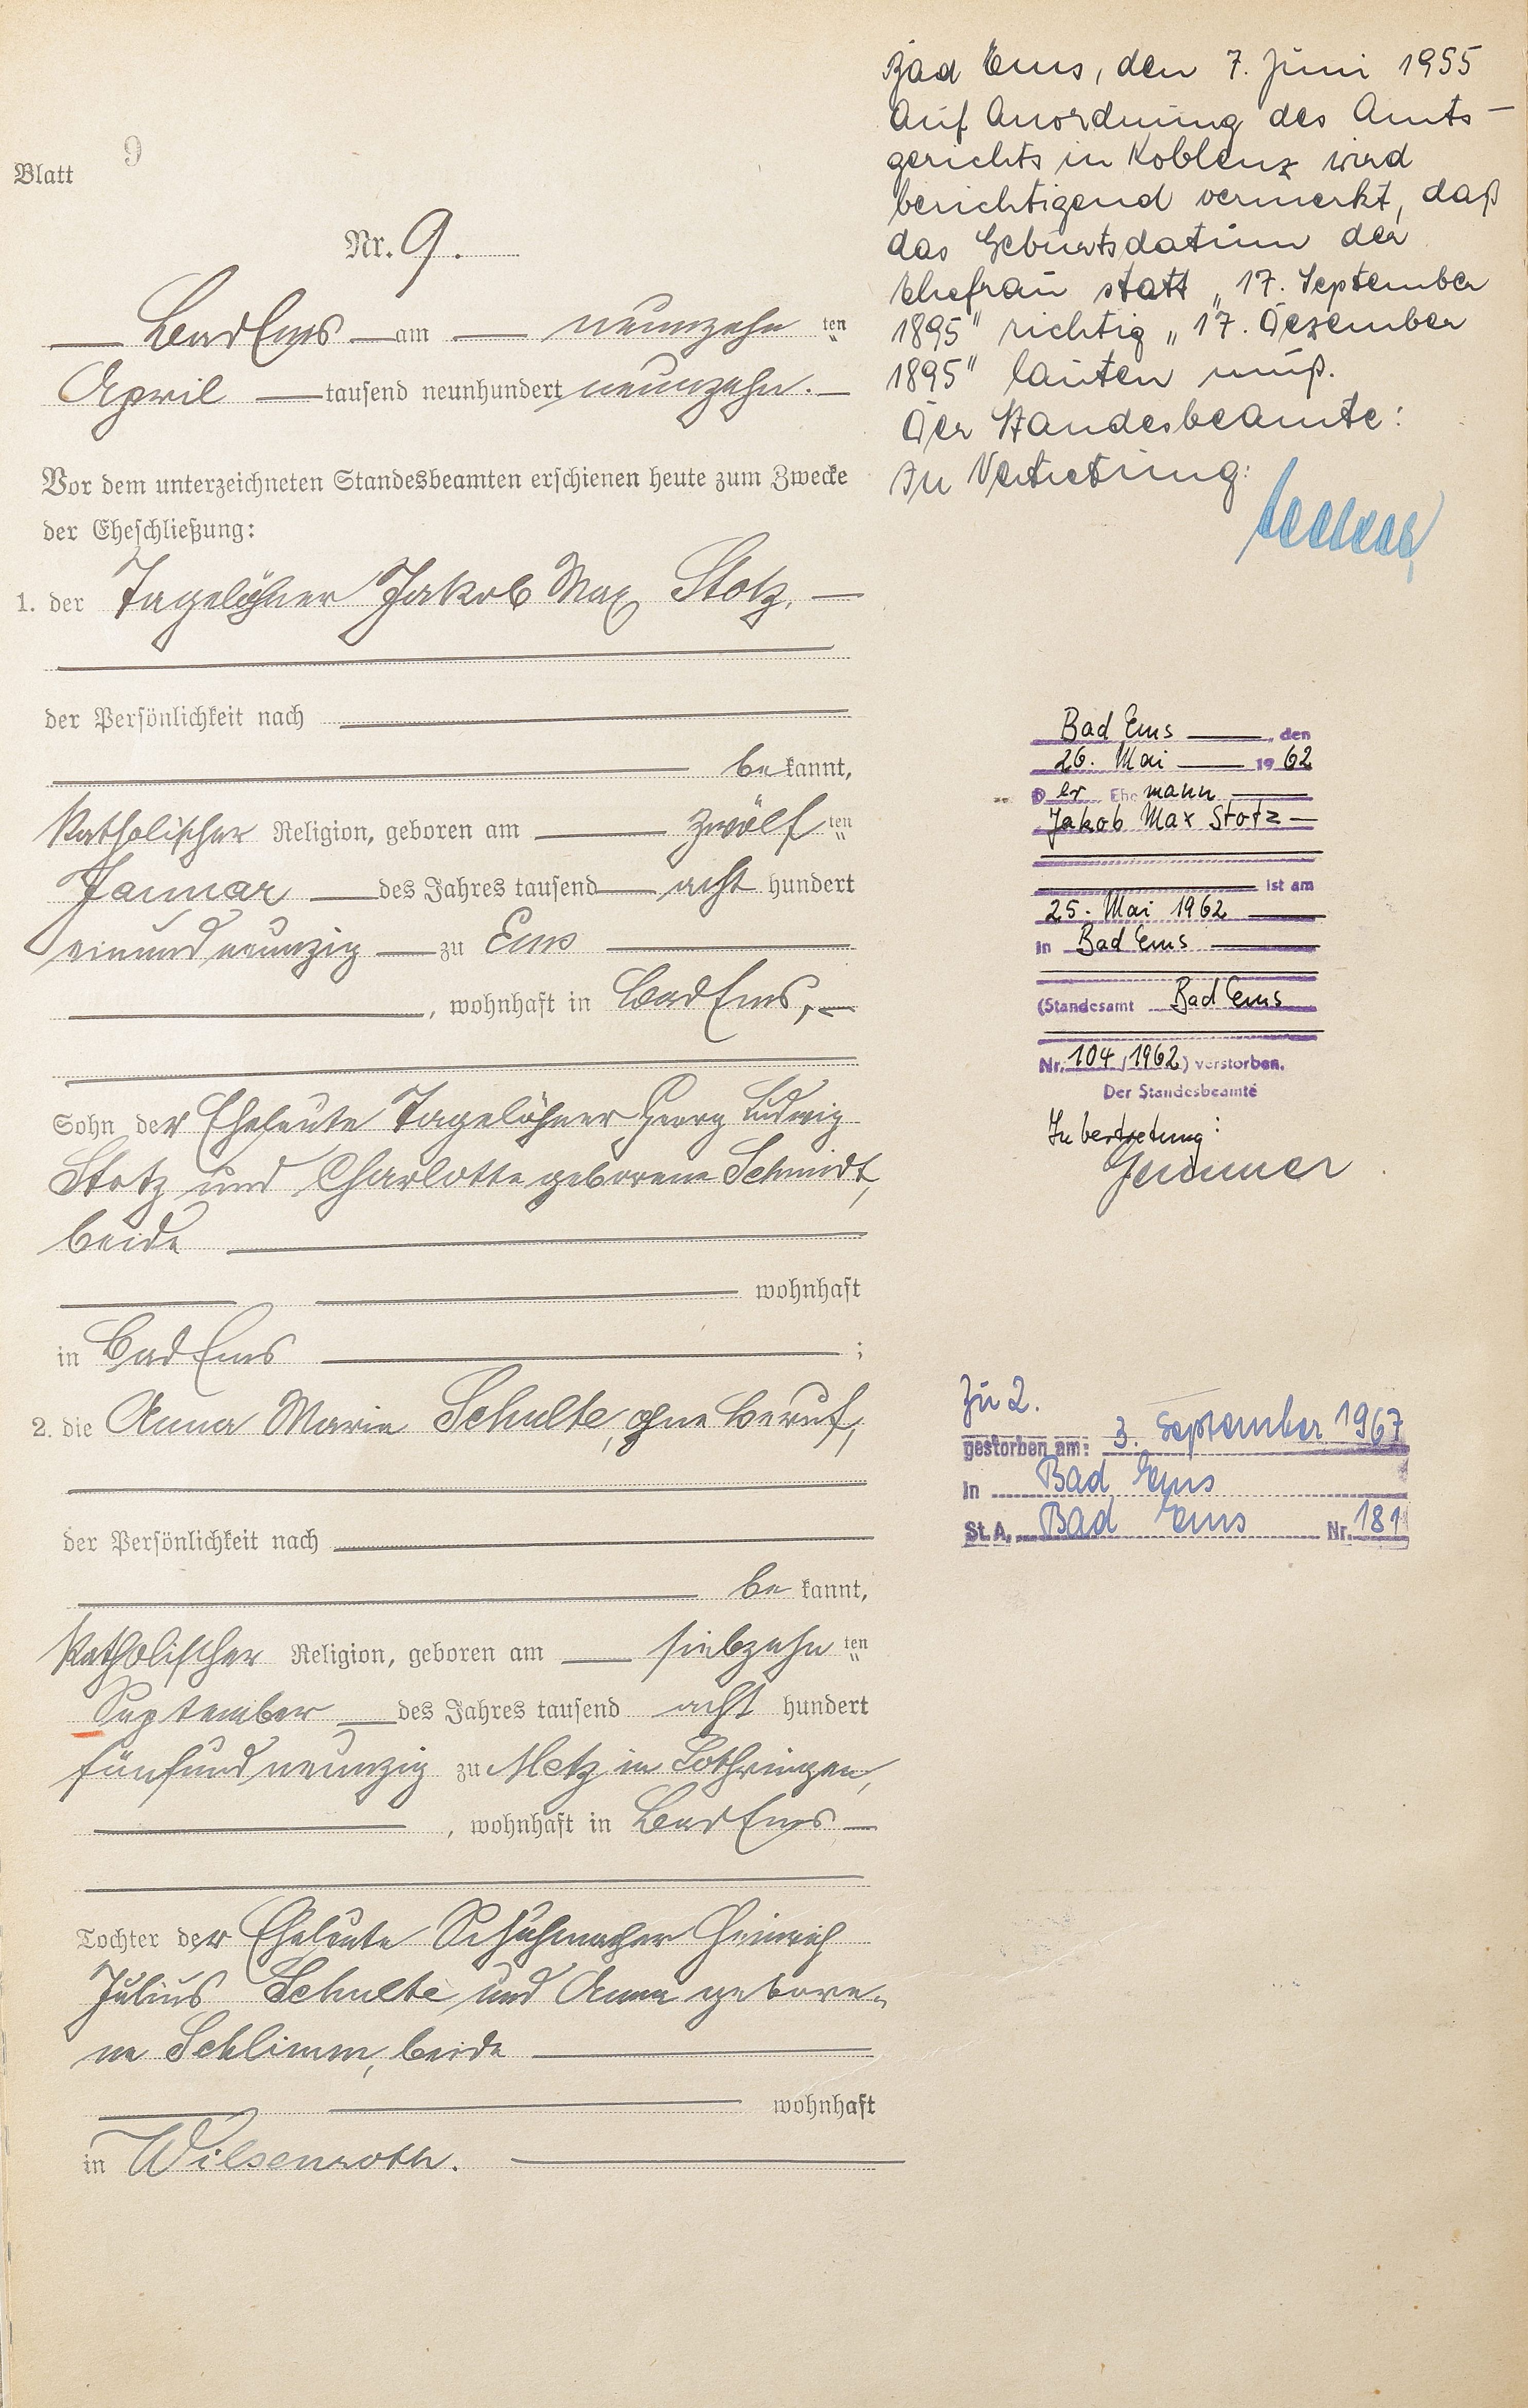 Blatt 9
Nr. 9.
Bad Ems am neunzehnten
April tausend neunhundert neunzehn.
Vor dem unterzeichneten Standesbeamten erschienen heute zum Zwecke
der Eheschließung:
1. der Tagelöhner Jakob Max Stotz,
der Persönlichkeit nach
bekannt,
Katholischer Religion, geboren am zwölften
Januar des Jahres tausend acht hundert
einundneunzig zu Ems
, wohnhaft in Bad Ems,
Sohn der Eheleute Tagelöhner Georg Ludwig
Stotz und Charlotte geborene Schmidt,
beide
wohnhaft
in Bad Ems ;
2. die Anna Maria Schulte, ohne Beruf,
der Persönlichkeit nach
bekannt,
Katholischer Religion, geboren am siebzehnten
September des Jahres tausend acht hundert
fünfundneunzig zu Metz in Lothringen,
, wohnhaft in Bad Ems
Tochter der Eheleute Schuhmacher Heinrich
Julius Schulte und Anna gebore-
ne Schlimm, beide
wohnhaft
in Wilsenroth.
Bad Ems, den 7. Juni 1955
Auf Anordnung des Amts-
gerichts in Koblenz wird
berichtigend vermerkt, daß
das Geburtsdatum der
Ehefrau statt „17. September
1895" richtig „17. Dezember
1895" lauten muß.
Der Standesbeamte:
In Vertretung:
Bad Ems, den
26. Mai 1962
Der Ehemann
Jakob Max Stotz
ist am
25. Mai 1962
in Bad Ems
(Standesamt Bad Ems
Nr. 104/1962) verstorben.
Der Standesbeamte
In Vertretung:
Zu 2.
gestorben am: 3. September 1967
in Bad Ems
St. A. Bad Ems Nr. 181